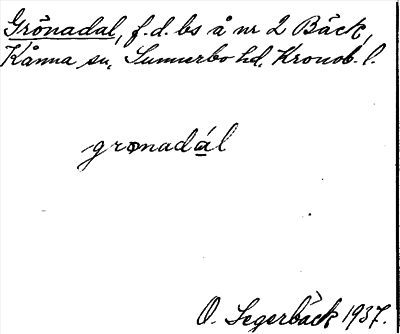 Grönadal, f.d. bs å nr 2 Bäck,
Kånna sn, Sunnerbo hd, Kronob. l.
gronadál
O. Segerbäck 1937.